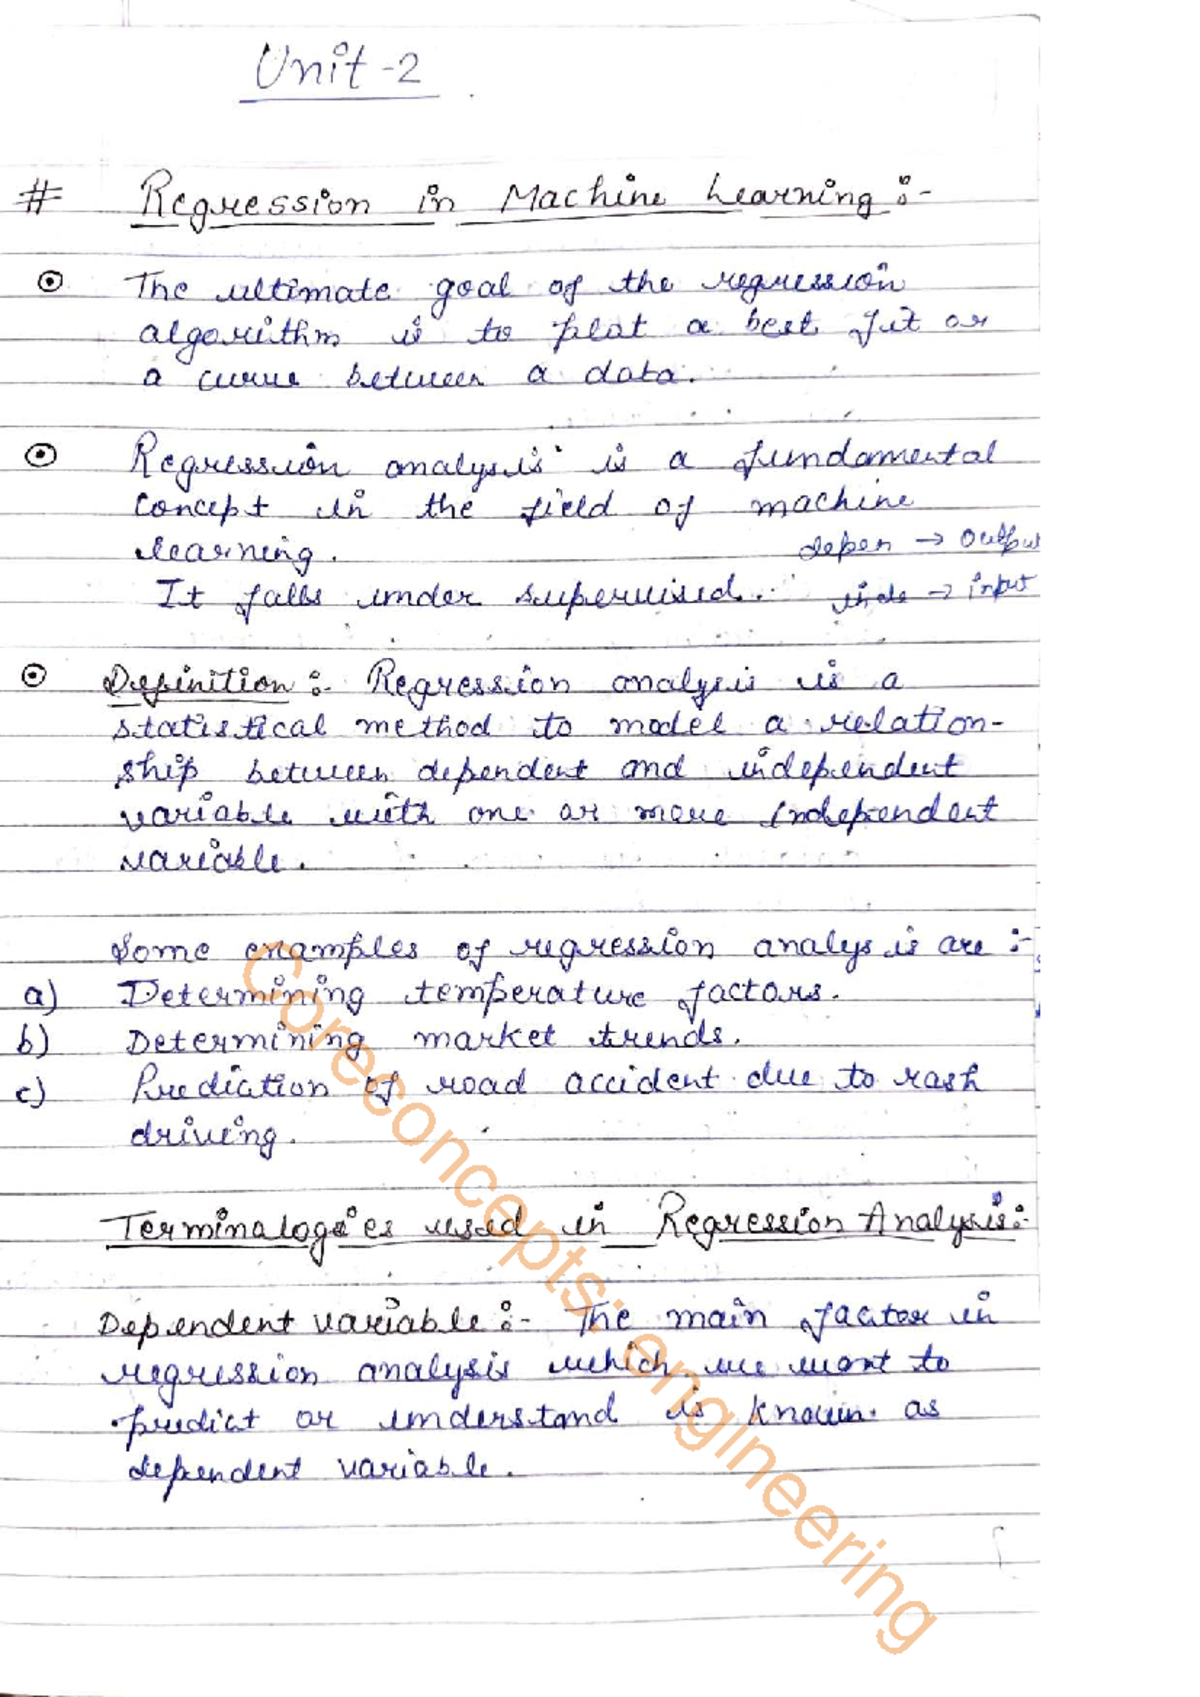 Unit-2
# Regression in Machine Learning :-
The ultimate goal of the regression
algorithm is to plot a best fit or
a curve between a data.
Regression analysis is a fundamental
concept in the field of machine
learning.
depen → output
It falls under supervised.
inde → input
Definition :- Regression analysis is a
statistical method to model a relation-
ship between dependent and independent
variable with one or more independent
variable.
Some examples of regression analysis are :-
a) Determining temperature factors.
b) Determining market trends.
c) Prediction of road accident due to rash
driving.
Terminalogies used in Regression Analysis:-
Dependent variable :- The main factor in
regression analysis which we want to
predict or understand is known as
dependent variable.
Coreconcepts.engineering